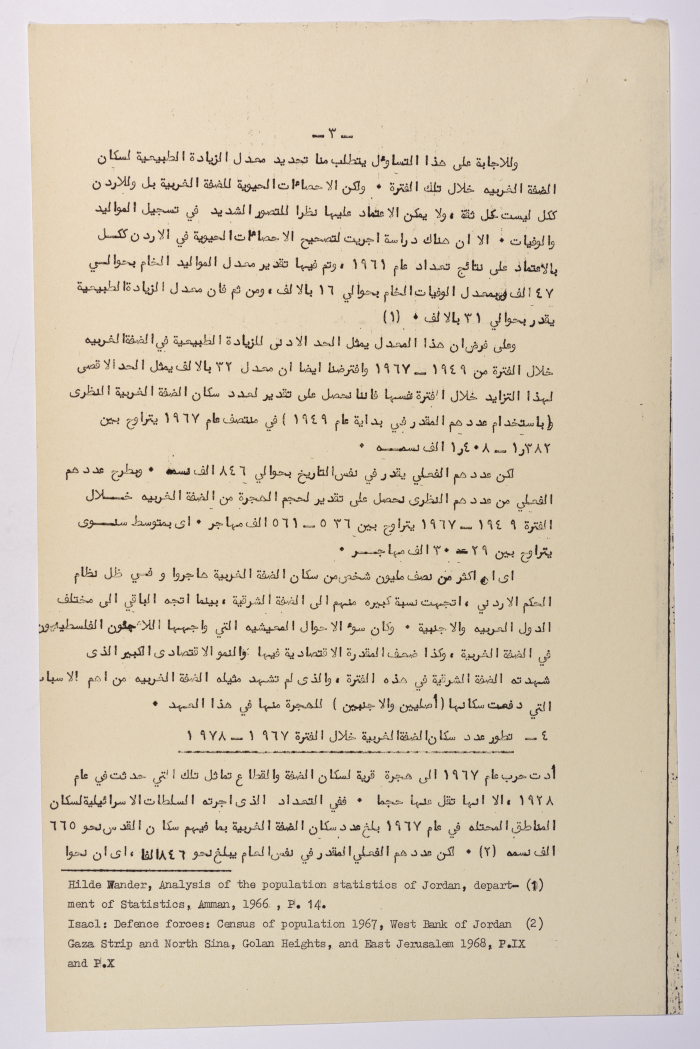 — ٣ —
وللاجابة على هذا التساؤل يتطلب منا تحديد معدل الزيادة الطبيعية لسكان
الضفة الغربيه خلال تلك الفترة ٠ ولكن الاحصاءات الحيوية للضفة الغربية بل وللاردن
ككل ليست كل ثقة ، ولا يمكن الاعتماد عليها نظرا للتصور الشديد في تسجيل المواليد
والوفيات ٠ الا ان هناك دراسة اجريت لتصحيح الاحصاءات الحيوية في الاردن ككل
بالاعتماد على نتائج تعداد عام ١٩٦١ ، وتم فيها تقدير معدل المواليد الخام بحوالي
٤٧ الف وبمعدل الوفيات الخام بحوالي ١٦ بالالف ، ومن ثم فان معدل الزيادة الطبيعية
يقدر بحوالي ٣١ بالالف ٠ (١)
وعلى فرض ان هذا المعدل يمثل الحد الادنى للزيادة الطبيعية في الضفة الغربيه
خلال الفترة من ١٩٤٩ — ١٩٦٧ وافترضنا ايضا ان معدل ٣٢ بالالف يمثل الحد الاقصى
لهذا التزايد خلال الفترة نفسها فاننا نحصل على تقدير لعدد سكان الضفة الغربية النظرى
(باستخدام عددهم المقدر في بداية عام ١٩٤٩ ) في منتصف عام ١٩٦٧ يتراوح بين
١٫٣٨٢ — ١٫٤٠٨ الف نسمـــه ٠
لكن عددهم الفعلي يقدر في نفس التاريخ بحوالي ٨٤٦ الف نسمه ٠ وبطرح عددهم
الفعلي من عددهم النظرى نحصل على تقدير لحجم الهجرة من الضفة الغربيه خـــلال
الفترة ١٩٤٩ — ١٩٦٧ يتراوح بين ٥٣٦ — ٥٦١ الف مهاجر ٠ اى بمتوسط سنـــوى
يتراوح بين ٢٩ — ٣٠ الف مهاجـــر ٠
اى ان اكثر من نصف مليون شخص من سكان الضفة الغربية هاجروا و فـي ظل نظام
الحكم الاردني ، اتجهت نسبة كبيره منهم الى الضفة الشرقية ، بينما اتجه الباقي الى مختلف
الدول العربيه والاجنبية ٠ وكان سوء الاحوال المعيشيه التي واجهها اللاجئون الفلسطينيون
في الضفة الغربية ، وكذا ضعف المقدرة الاقتصادية فيها والنمو الاقتصادى الكبير الذى
شهدته الضفة الشرقية في هذه الفترة ، والذى لم تشهد مثيله الضفة الغربيه من اهم الاسباب
التي دفعت سكانها (أصليين والاجنبين ) للهجرة منها في هذا العهد ٠
٤ — تطور عدد سكان الضفة الغربية خلال الفترة ١٩٦٧ — ١٩٧٨
أدت حرب عام ١٩٦٧ الى هجرة قرية لسكان الضفة والقطاع تماثل تلك التي حدثت في عام
١٩٢٨ ، الا انها تقل عنها حجما ٠ ففي التعداد الذى اجرته السلطات الاسرائيلية لسكان
المناطق المحتله في عام ١٩٦٧ بلغ عدد سكان الضفة الغربية بما فيهم سكان القدس نحو ٦٦٥
الف نسمه (٢) ٠ لكن عددهم الفعلي المقدر في نفس العام يبلغ نحو ٨٤٦ الفا ، اى ان نحوا
Hilde Wander, Analysis of the population statistics of Jordan, depart- (1)
ment of Statistics, Amman, 1966 , P. 14.
Isacl: Defence forces: Census of population 1967, West Bank of Jordan (2)
Gaza Strip and North Sina, Golan Heights, and East Jerusalem 1968, P.IX
and P.X